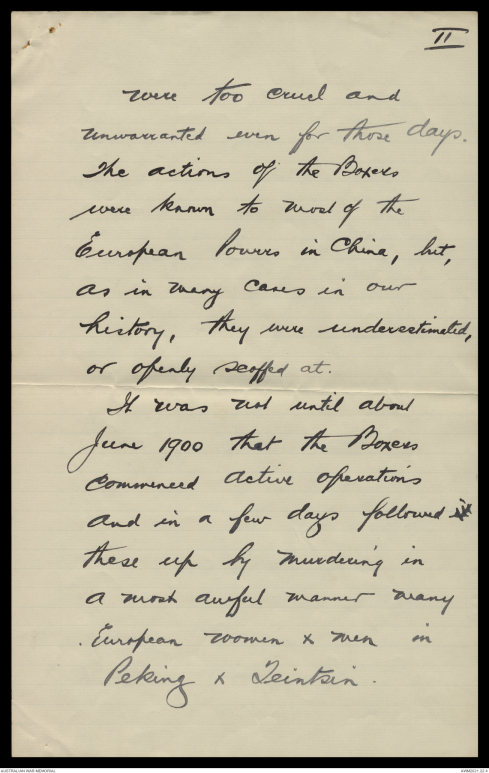 II
were too cruel and
unwarranted even for those days.
The actions of the Boxers
were known to most of the
European Powers in China, but,
as in many cases in our
history, they were underestimated,
or openly scoffed at.
It was not until about
June 1900 that the Boxers
commenced active operations
and in a few days followed
these up by murdering in
a most awful manner many
European women & men in
Peking & Teintsin.
AUSTRALIAN WAR MEMORIAL